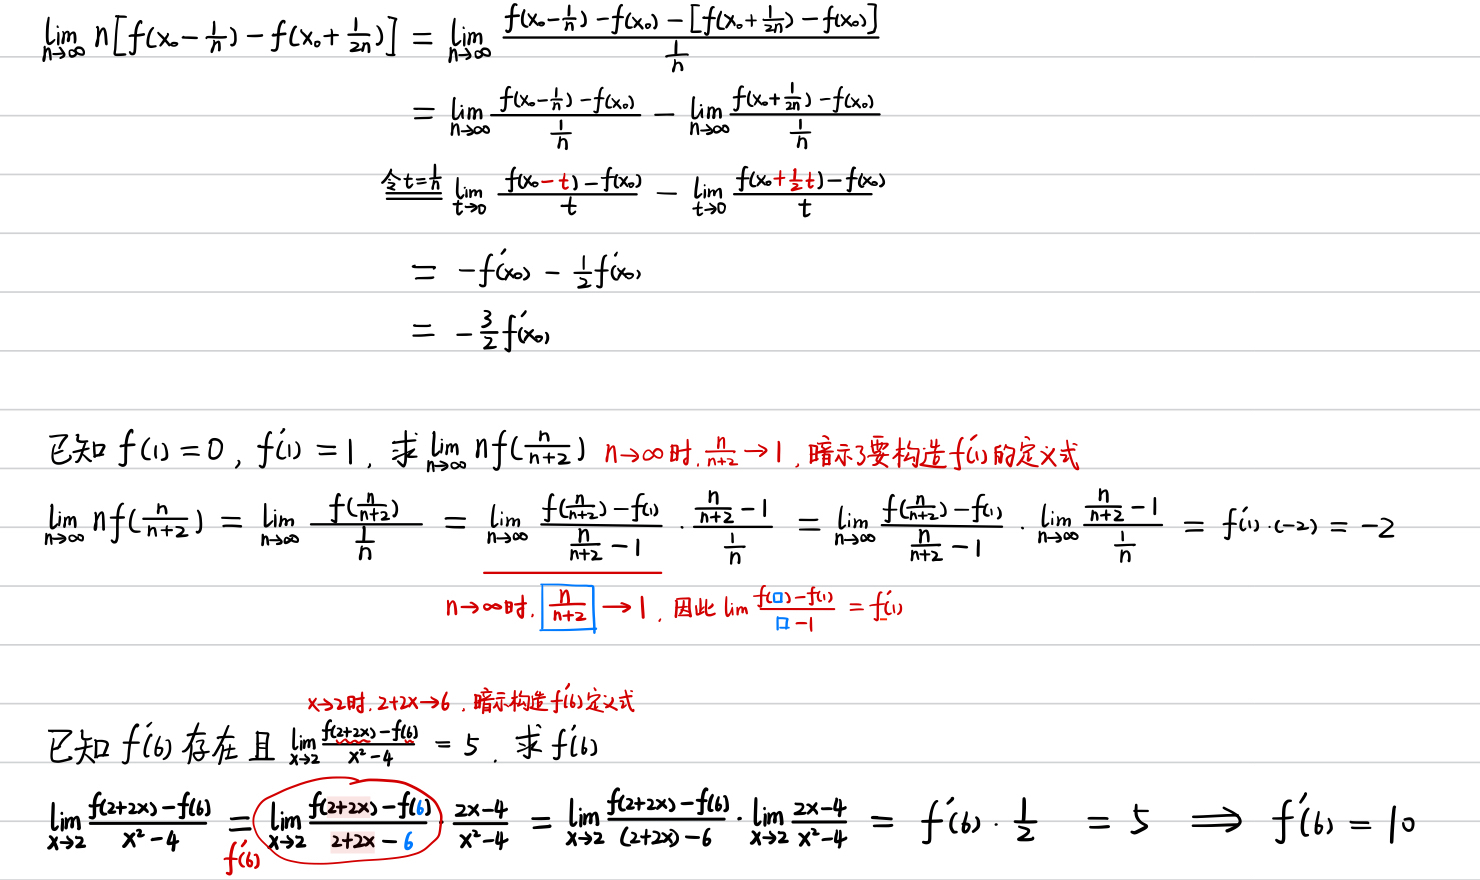 lim_{n→∞} n[f(x₀-1/n)-f(x₀+1/2n)] = lim_{n→∞} (f(x₀-1/n)-f(x₀)-[f(x₀+1/2n)-f(x₀)])/(1/n)
= lim_{n→∞} (f(x₀-1/n)-f(x₀))/(1/n) - lim_{n→∞} (f(x₀+1/2n)-f(x₀))/(1/n)
令t=1/n = lim_{t→0} (f(x₀-t)-f(x₀))/t - lim_{t→0} (f(x₀+1/2t)-f(x₀))/t
= -f′(x₀) - 1/2 f′(x₀)
= -3/2 f′(x₀)
已知 f(1)=0, f′(1)=1, 求 lim_{n→∞} nf(n/(n+2)) n→∞时, n/(n+2)→1, 暗示了要构造f′(1)的定义式
lim_{n→∞} nf(n/(n+2)) = lim_{n→∞} f(n/(n+2))/(1/n) = lim_{n→∞} (f(n/(n+2))-f(1))/(n/(n+2)-1) · (n/(n+2)-1)/(1/n) = lim_{n→∞} (f(n/(n+2))-f(1))/(n/(n+2)-1) · lim_{n→∞} (n/(n+2)-1)/(1/n) = f′(1)·(-2) = -2
n→∞时, n/(n+2) →1, 因此 lim (f(□)-f(1))/(□-1) = f′(1)
x→2时, 2+2x→6, 暗示构造f′(6)定义式
已知 f′(6) 存在且 lim_{x→2} (f(2+2x)-f(6))/(x²-4) = 5, 求 f′(6)
lim_{x→2} (f(2+2x)-f(6))/(x²-4) = lim_{x→2} (f(2+2x)-f(6))/(2+2x-6) · (2x-4)/(x²-4) = lim_{x→2} (f(2+2x)-f(6))/((2+2x)-6) · lim_{x→2} (2x-4)/(x²-4) = f′(6)·1/2 = 5 ⟹ f′(6) = 10
f′(6)